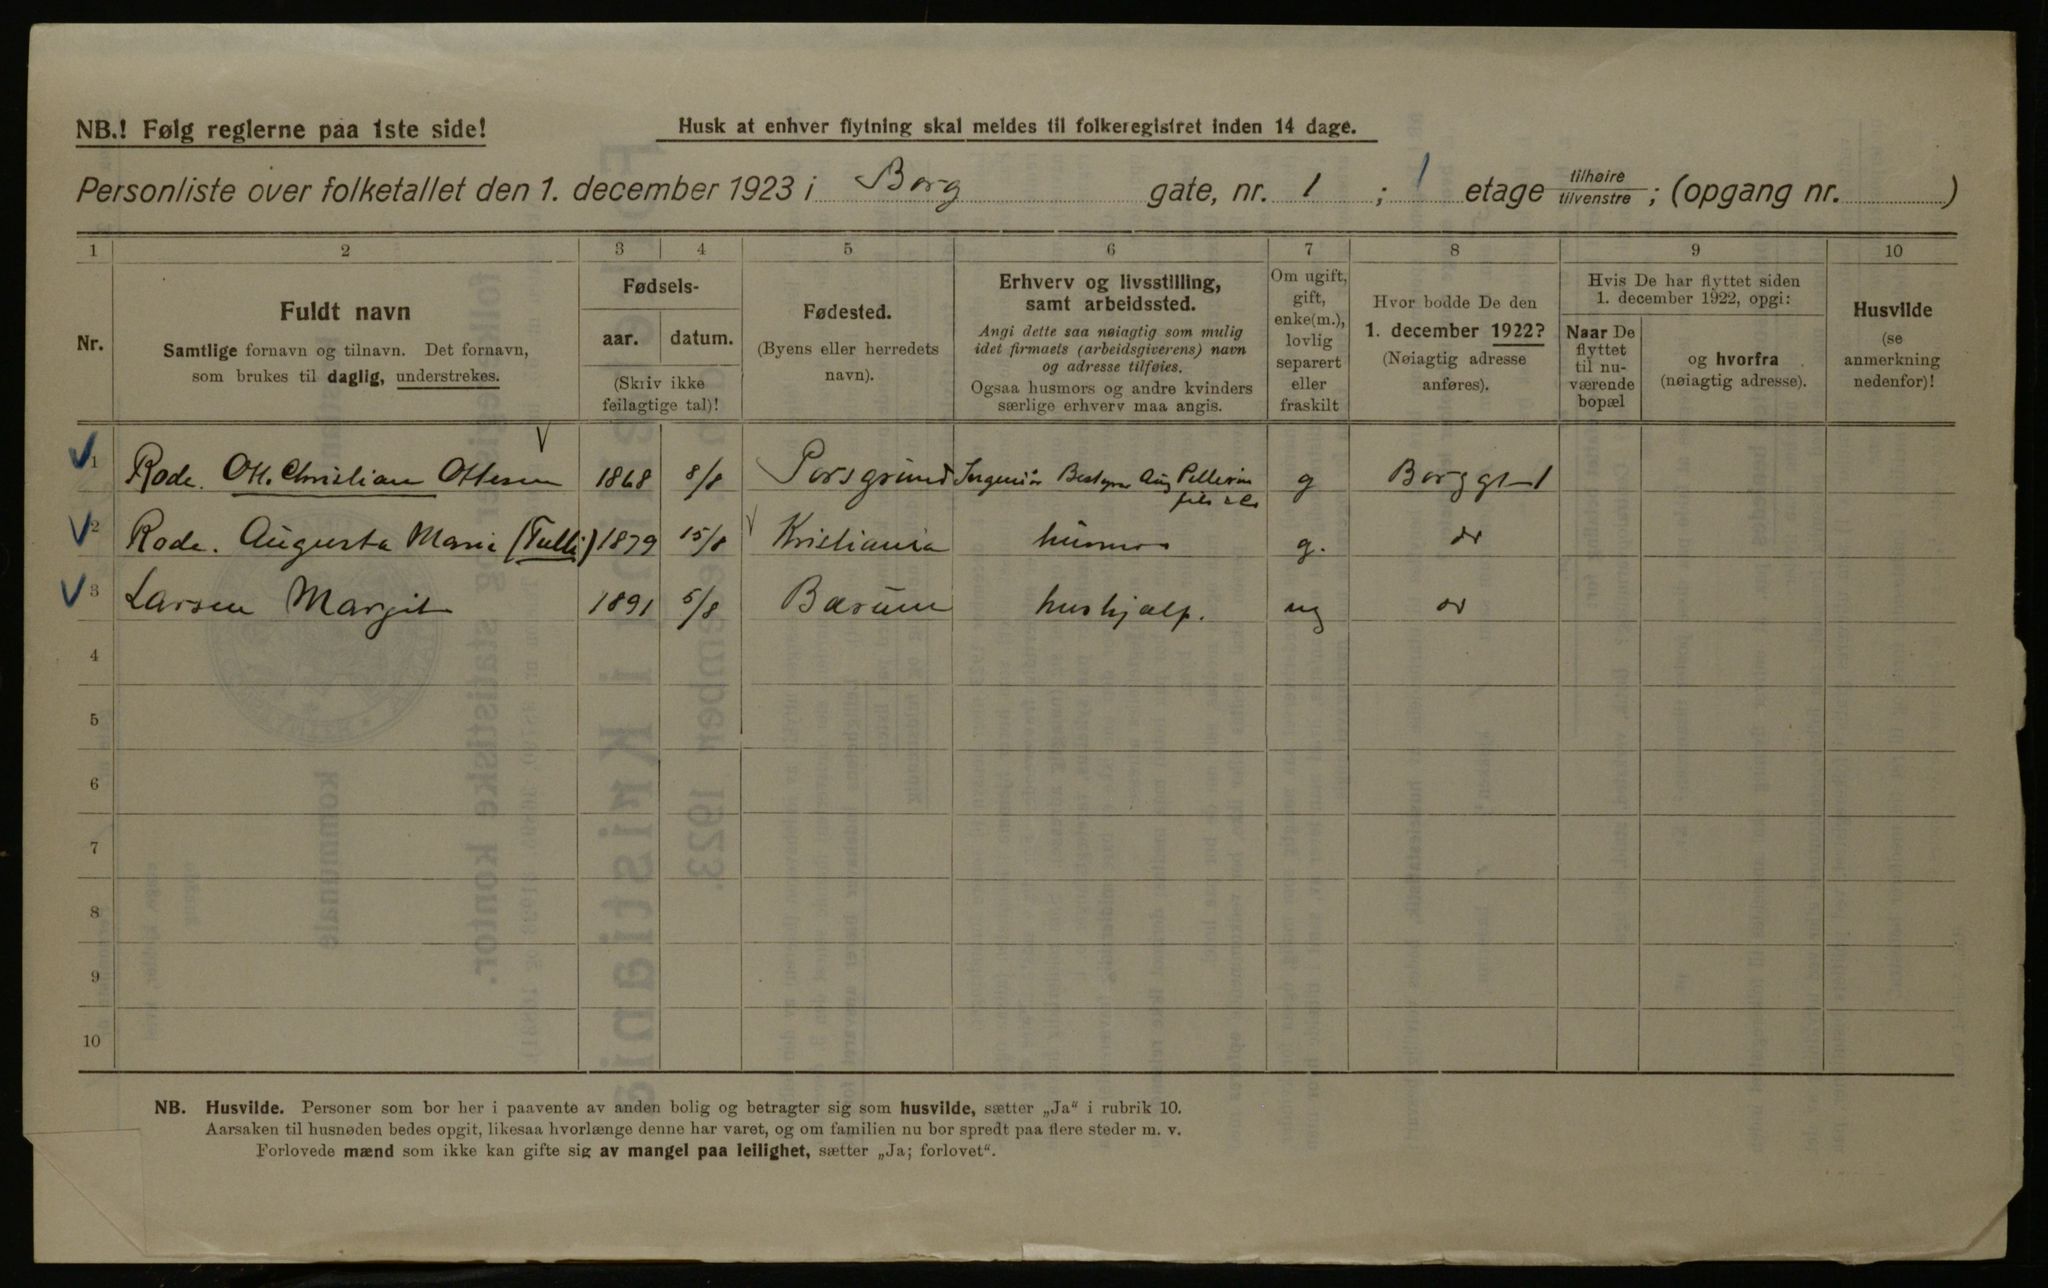 NB.! Følg reglerne paa 1ste side!
Husk at enhver flytning skal meldes til folkeregistret inden 14 dage.
Personliste over folketallet den 1. december 1923 i Borg gate, nr. 1 ; 1 etage tilhøire tilvenstre ; (opgang nr. )
1 2 3 4 5 6 7 8 9 10
Nr.
Fuldt navn
Samtlige fornavn og tilnavn. Det fornavn,
som brukes til daglig, understrekes.
Fødsels-
aar. datum.
(Skriv ikke
feilagtige tal)!
Fødested.
(Byens eller herredets
navn).
Erhverv og livsstilling,
samt arbeidssted.
Angi dette saa nøiagtig som mulig
idet firmaets (arbeidsgiverens) navn
og adresse tilføies.
Ogsaa husmors og andre kvinders
særlige erhverv maa angis.
Om ugift,
gift,
enke(m.),
lovlig
separert
eller
fraskilt
Hvor bodde De den
1. december 1922?
(Nøiagtig adresse
anføres).
Hvis De har flyttet siden
1. december 1922, opgi:
Naar De
flyttet
til nu-
værende
bopæl
og hvorfra
(nøiagtig adresse).
Husvilde
(se
anmerkning
nedenfor)!
1 Rode. Ott. Christian Ottesen 1868 8/8 Porsgrund Ingeniør Bestyrer Aug Pellerin fils & Co g Borggt 1
2 Rode. Augusta Marie (Tulli) 1879 15/8 Kristiania husmor g. do
3 Larsen Margit 1891 5/8 Bærum hushjælp. ug do
4
5
6
7
8
9
10
NB. Husvilde. Personer som bor her i paavente av anden bolig og betragter sig som husvilde, sætter „Ja“ i rubrik 10.
Aarsaken til husnøden bedes opgit, likesaa hvorlænge denne har varet, og om familien nu bor spredt paa flere steder m. v.
Forlovede mænd som ikke kan gifte sig av mangel paa leilighet, sætter „Ja; forlovet“.